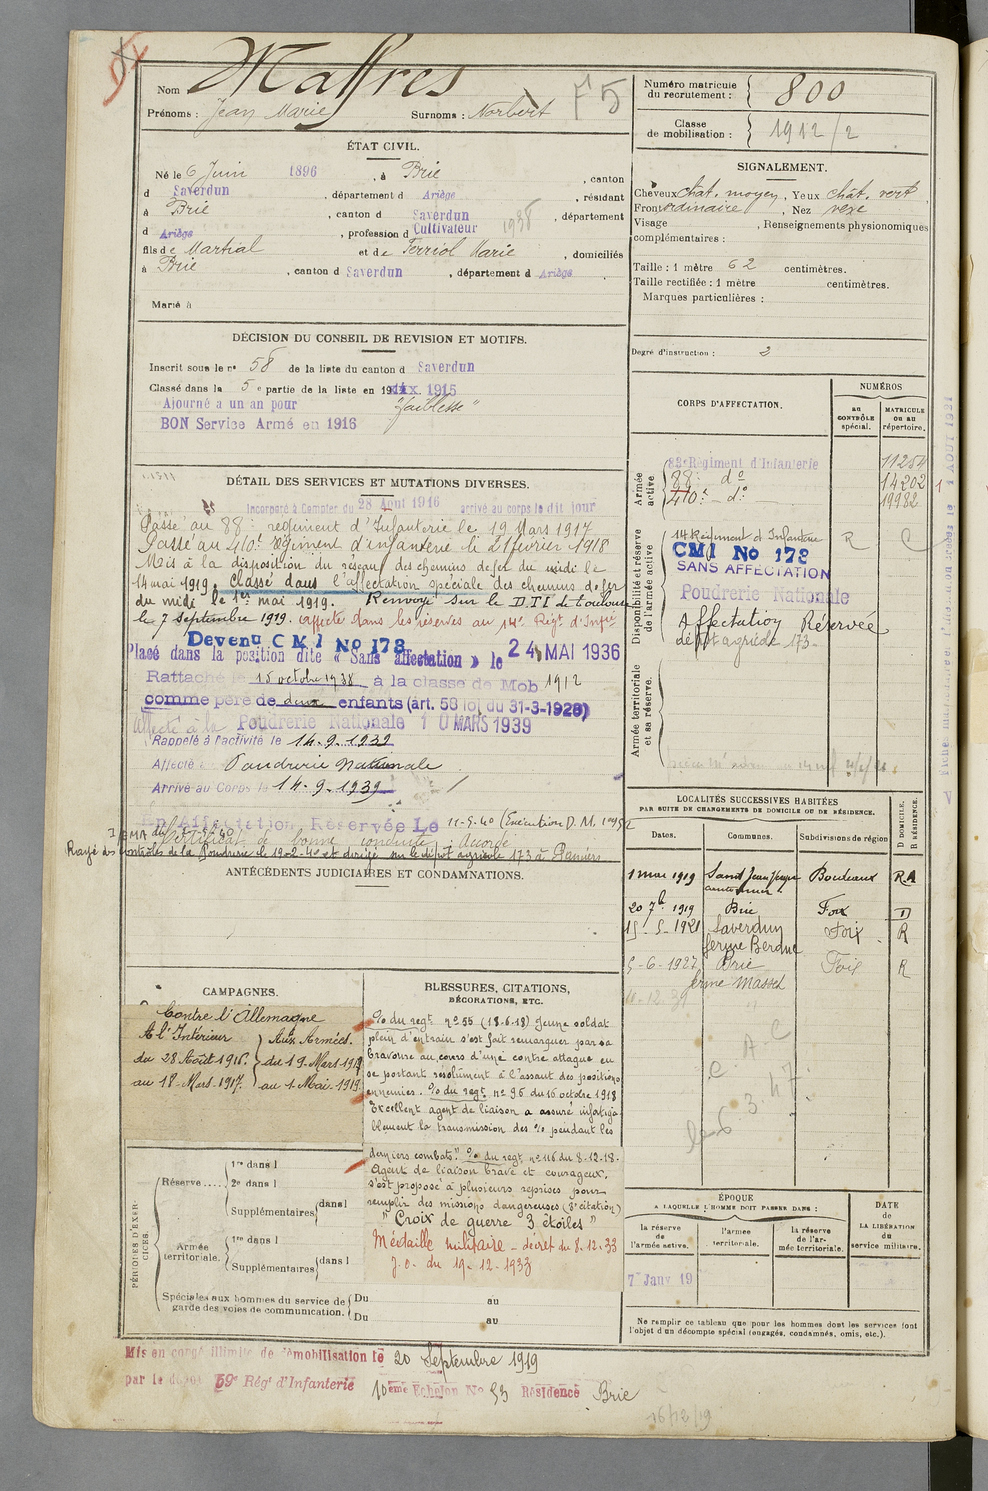 Nom Maffres
Prénoms : Jean Marie Surnoms : Norbert
F 5
Numéro matricule du recrutement : 800
Classe de mobilisation : 1912/2
ÉTAT CIVIL.
Né le 6 Juin 1896, à Brie, canton
d Saverdun, département d Ariège, résidant
à Brie, canton d Saverdun, département
d Ariège, profession d Cultivateur
1938
fils de Martial et de Ferriol Marie, domiciliés
à Brie, canton d Saverdun, département d Ariège
Marié à
SIGNALEMENT.
Cheveux chat. moyen, Yeux chât. vert
Front ordinaire, Nez vexe
Visage , Renseignements physionomiques
complémentaires :
Taille : 1 mètre 62 centimètres.
Taille rectifiée : 1 mètre centimètres.
Marques particulières :
Degré d'instruction : 2
DÉCISION DU CONSEIL DE REVISION ET MOTIFS.
Inscrit sous le n° 58 de la liste du canton d Saverdun
Classé dans la 5e partie de la liste en 1915
Ajourné a un an pour "faiblesse"
BON Service Armé en 1916
CORPS D'AFFECTATION.
NUMÉROS
AU CONTRÔLE spécial.
MATRICULE OU AU répertoire.
Armée active
83e Régiment d'Infanterie 11254
88e do 14202
410e do 19982
Disponibilité et réserve de l'armée active
14 Régiment d'Infanterie R
CMI No 178
SANS AFFECTATION
Poudrerie Nationale
Affectation Réservée
dépôt agricole 173
Armée territoriale et sa réserve.
DÉTAIL DES SERVICES ET MUTATIONS DIVERSES.
Incorporé à Compter du 28 Aout 1916 arrivé au corps le dit jour
Passé au 88e régiment d'Infanterie le 19 Mars 1917
Passé au 410e Régiment d'infanterie le 21 février 1918
Mis à la disposition du réseau des chemins de fer du midi le
14 mai 1919. Classé dans l'affectation spéciale des chemins de fer
du midi le 1er mai 1919. Renvoyé sur le DTI de toulouse
le 7 Septembre 1919. affecté dans les réserves au 14e Régt d'Infie
Devenu CMI No 178
Placé dans la position dite « Sans affectation » le 24 MAI 1936
Rattaché le 15 octobre 1938 à la classe de Mob 1912
comme père de deux enfants (art. 58 loi du 31-3-1928)
Affecté à la Poudrerie Nationale 10 MARS 1939
Rappelé à l'activité le 14.9.1939
Affecté à Poudrerie Nationale
Arrivé au Corps le 14-9-1939
En Affectation Réservée Le 11-5-40
Certificat de bonne conduite : Accordé
Rayé des contrôles de la Poudrerie le et dirigé sur le dépôt agricole 173 à Pamiers
ANTÉCÉDENTS JUDICIAIRES ET CONDAMNATIONS.
LOCALITÉS SUCCESSIVES HABITÉES
PAR SUITE DE CHANGEMENTS DE DOMICILE OU DE RÉSIDENCE.
Dates. Communes. Subdivisions de région D DOMICILE. R RÉSIDENCE.
1 mai 1919 Bordeaux RA
20 7b 1919 Brie Foix D
15-5-1921 Saverdun Foix R
ferme Berdue
5-6-1927 Brie Foix R
ferme Massot
CAMPAGNES.
Contre l'Allemagne
A l'Intérieur Aux Armées.
du 28 Août 1916. du 19-Mars-1917
au 18-Mars-1917. au 1-Mai-1919
BLESSURES, CITATIONS,
DÉCORATIONS, ETC.
% du regt. n° 55 (18-6-18) Jeune soldat
plein d'entrain s'est fait remarquer par sa
bravoure au cours d'une contre attaque en
se portant résolument à l'assaut des positions
ennemies. % du regt. n° 96 du 16 octobre 1918
Excellent agent de liaison a assuré infatiga
blement la transmission des % pendant les
derniers combats". % du regt. n° 116 du 8-12-18-
Agent de liaison brave et courageux,
s'est proposé à plusieurs reprises pour
remplir des missions dangereuses (3e citation)
"Croix de guerre 3 étoiles"
Médaille militaire - décret du 8.12.33
J.O. du 19-12-1933
PÉRIODES D'EXERCICES.
Réserve
1re dans l
2e dans l
Supplémentaires dans l
Armée territoriale.
1re dans l
Supplémentaires dans l
Spéciales aux hommes du service de garde des voies de communication.
Du au
Du au
ÉPOQUE
A LAQUELLE L'HOMME DOIT PASSER DANS :
la réserve de l'armée active.
l'armée territoriale.
la réserve de l'armée territoriale.
DATE DE LA LIBÉRATION du service militaire.
Ne remplir ce tableau que pour les hommes dont les services font
l'objet d'un décompte spécial (engagés, condamnés, omis, etc.).
Mis en congé illimité de démobilisation le 20 Septembre 1919
par le dépôt 59e Régt d'Infanterie 10ème Echelon No 53 Résidence Brie
16/12/19